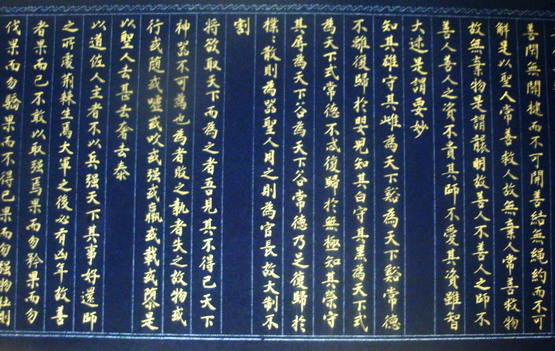 善閉無關楗而不可開善結無繩約而不可
解是以聖人常善救人故無棄人常善救物
故無棄物是謂襲明故善人不善人之師不
善人善人之資不貴其師不愛其資雖智
大迷是謂要妙
知其雄守其雌為天下谿為天下谿常德
不離復歸於嬰兒知其白守其黑為天下式
為天下式常德不忒復歸於無極知其榮守
其辱為天下谷為天下谷常德乃足復歸於
樸散則為器聖人用之則為官長故大制不
割
將欲取天下而為之者吾見其不得已天下
神器不可為也為者敗之執者失之故物或
行或随或噓或吹或强或羸或載或隳是
以聖人去甚去奢去泰
以道佐人主者不以兵强天下其事好還師
之所處荊棘生焉大軍之後必有凶年故善
者果而已不敢以取强焉果而勿矜果而勿
伐果而勿驕果而不得已果而勿强物壯則